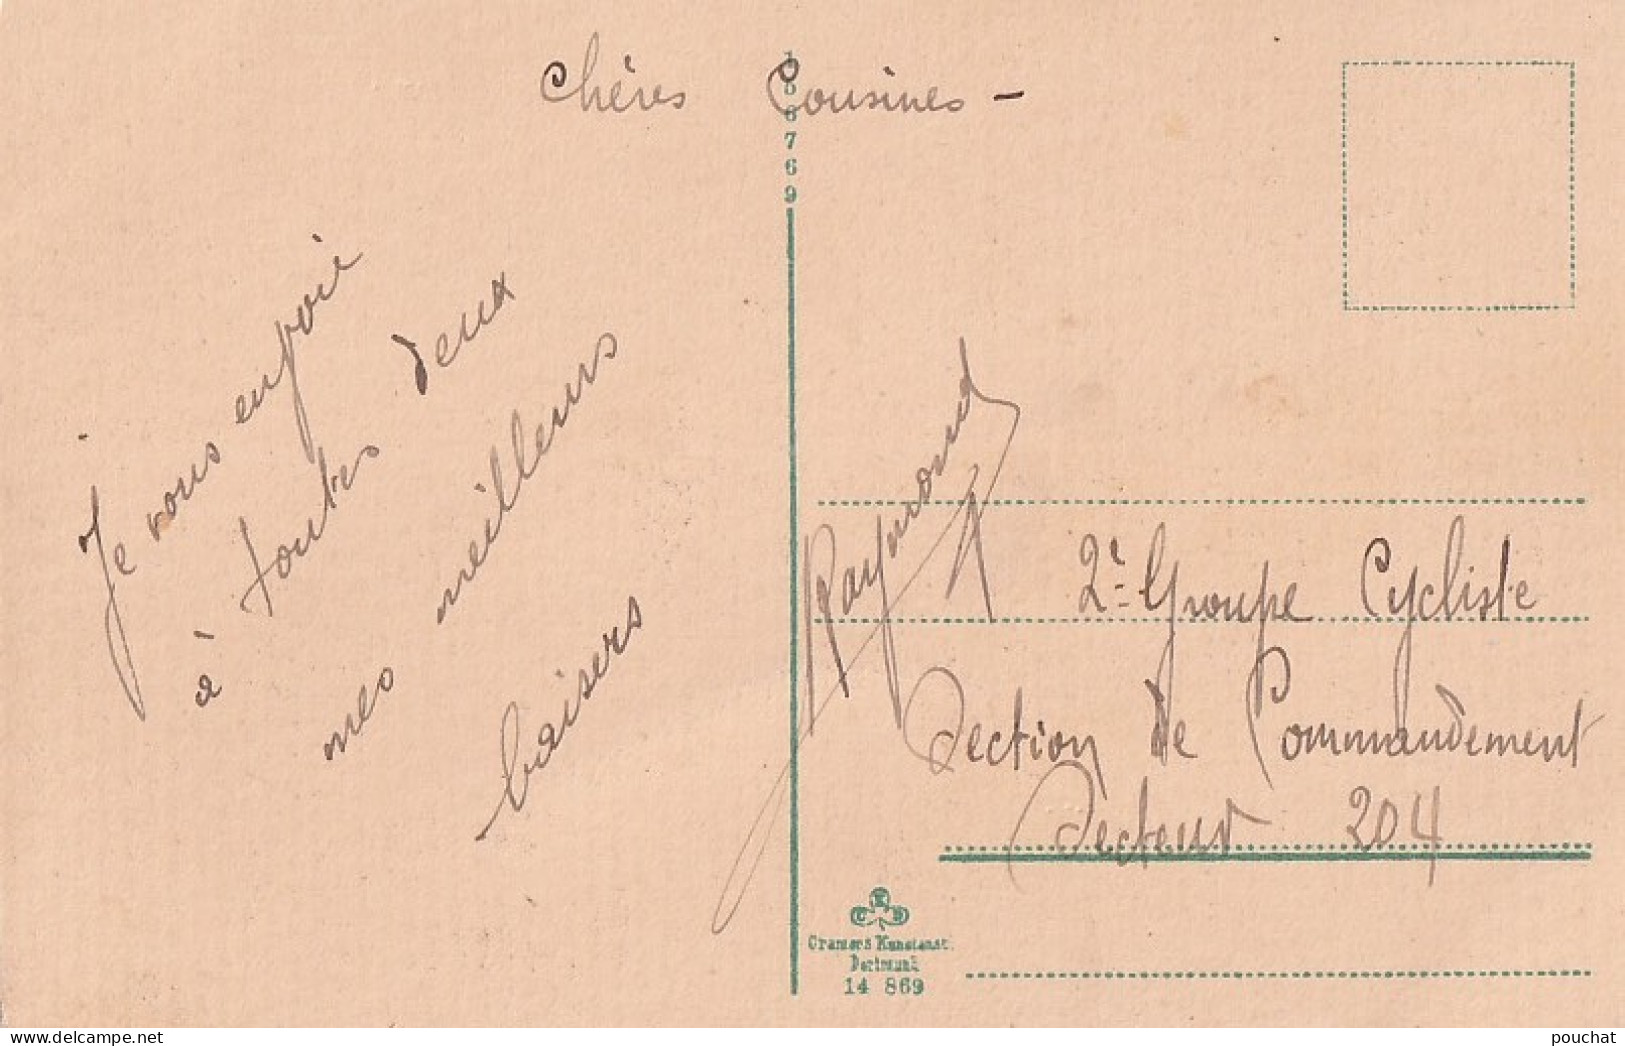 Chères Cousines -
Je vous envoie
à toutes deux
mes meilleurs
baisers
Raymond
2è Groupe Cycliste
Section de Commandement
Secteur 204
CKD
Cramers Kunstanst.
Dortmund
14 869
pouchat